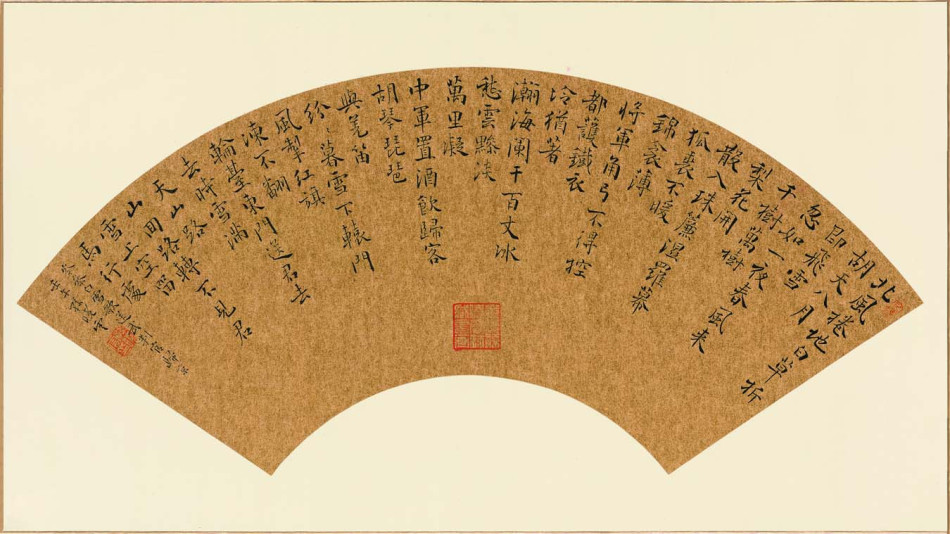 北風捲地白草折
胡天八月
即飛雪
忽如一夜春風来
千樹萬樹
梨花開
散入珠簾濕羅幕
狐裘不暖
錦衾薄
將軍角弓不得控
都護鐵衣
冷猶著
瀚海闌干百丈冰
愁雲黲淡
萬里凝
中軍置酒飲歸客
胡琴琵琶
與羌笛
紛紛暮雪下轅門
風掣紅旗
凍不翻
輪臺東門送君去
去時雪滿
天山路
山回路轉不見君
雪上空留
馬行處
岑參白雪歌送武判官歸京